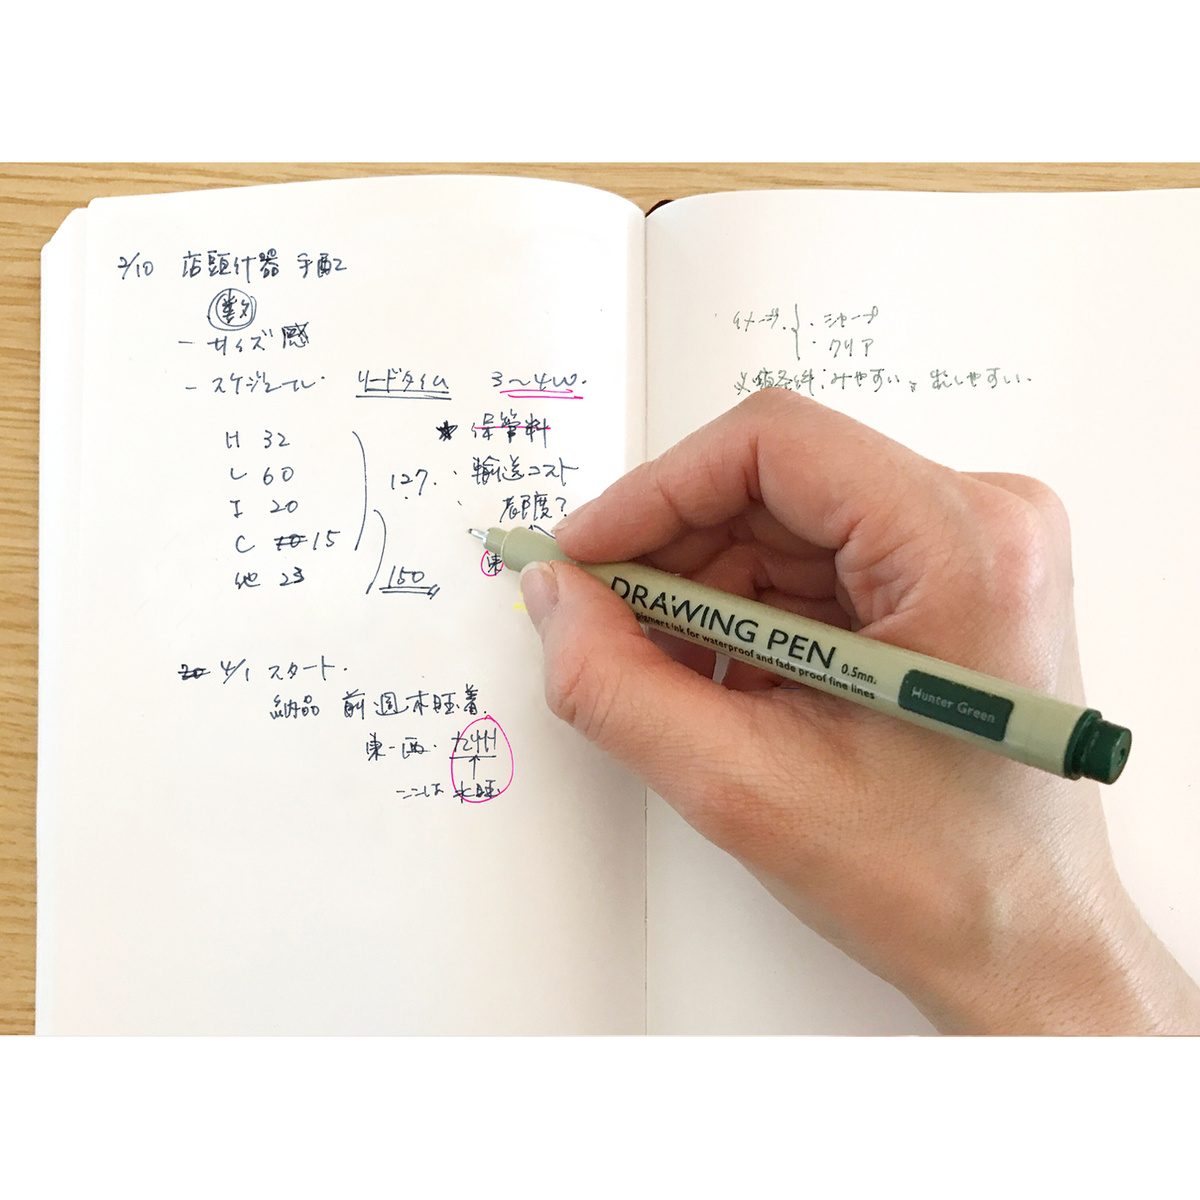 2/10 店頭什器 手配
数
- サイズ感
- スケジュール. リードタイム 3〜4W.
保管料
H 32
L 60
127.
・輸送コスト
I 20
都度?
C 15
東
他 23
150
4/1 スタート.
納品 前週木旺着.
東-西. 九州
↑
ここは 水旺
イメージ. ・シャープ
・クリア
必須条件:みやすい。出しやすい.
DRAWING PEN 0.5mm.
pigment ink for waterproof and fade proof fine lines
Hunter Green